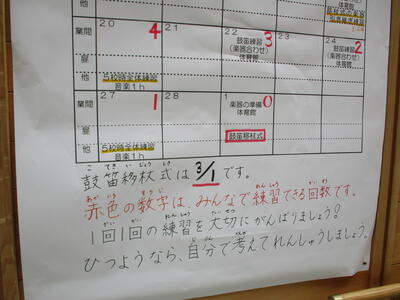 業間 20 4 21 22 3 23 24 2
昼 鼓笛練習 鼓笛練習
(楽器合わせ) (楽器合わせ)
体育館 体育館
他 5校時全体練習
音楽1h
業間 27 1 28 1 0 2 3
楽器の準備
体育館
昼 鼓笛移杖式
他 5校時全体練習
音楽1h
鼓笛移杖式は 3/1 です。
赤色の数字は、みんなで練習できる回数です。
1回1回の練習を大切にがんばりましょう!
ひつようなら、自分で考えてれんしゅうしましょう。